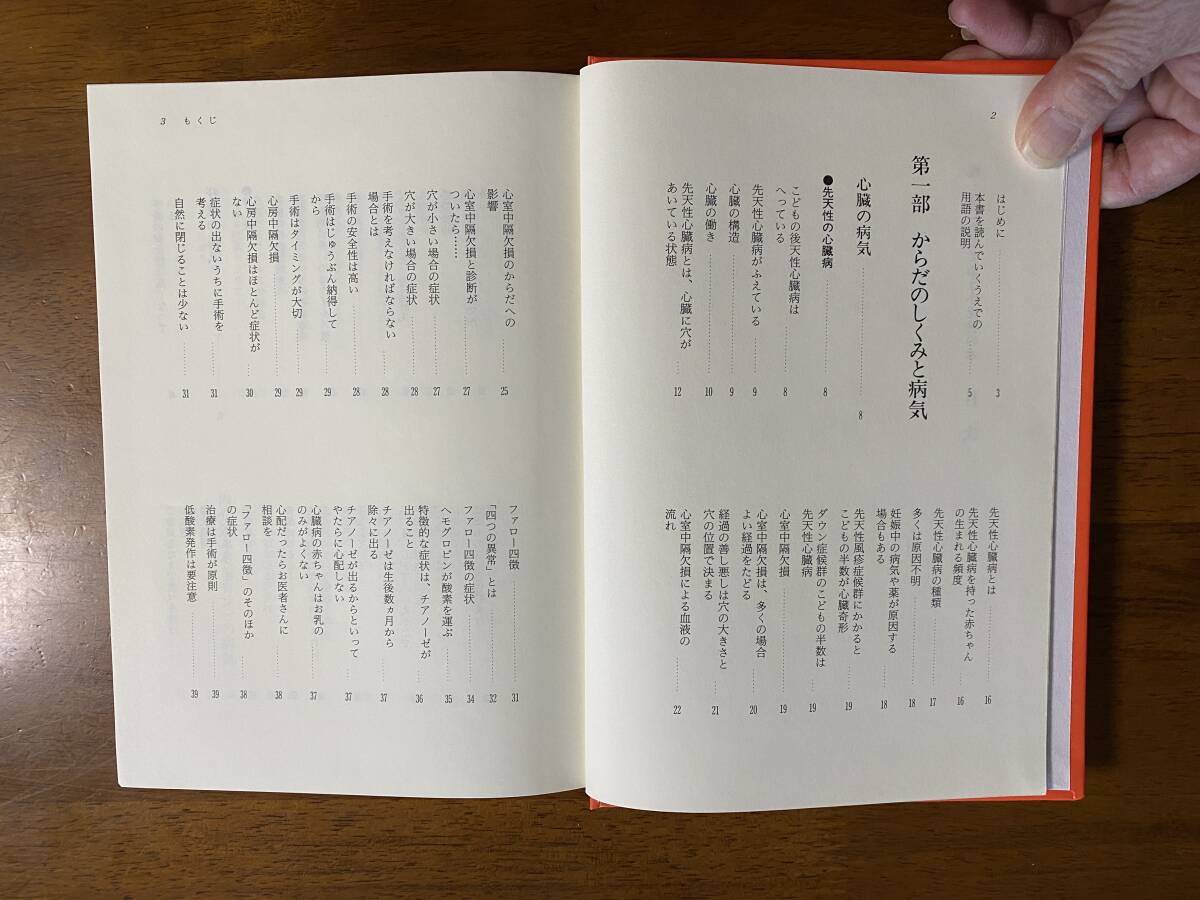 2
はじめに…………3
本書を読んでいくうえでの
用語の説明…………5
第一部 からだのしくみと病気
心臓の病気…………8
●先天性の心臓病…………8
こどもの後天性心臓病は
へっている…………8
先天性心臓病がふえている…………9
心臓の構造…………9
心臓の働き…………10
先天性心臓病とは、心臓に穴が
あいている状態…………12
先天性心臓病とは…………16
先天性心臓病を持った赤ちゃん
の生まれる頻度…………16
先天性心臓病の種類…………17
多くは原因不明…………18
妊娠中の病気や薬が原因する
場合もある…………18
先天性風疹症候群にかかると
こどもの半数が心臓奇形…………19
ダウン症候群のこどもの半数は
先天性心臓病…………19
心室中隔欠損…………19
心室中隔欠損は、多くの場合
よい経過をたどる…………20
経過の善し悪しは穴の大きさと
穴の位置で決まる…………21
心室中隔欠損による血液の
流れ…………22
3 もくじ
心室中隔欠損のからだへの
影響…………25
心室中隔欠損と診断が
ついたら………………27
穴が小さい場合の症状…………27
穴が大きい場合の症状…………28
手術を考えなければならない
場合とは…………28
手術の安全性は高い…………28
手術はじゅうぶん納得して
から…………29
手術はタイミングが大切…………29
心房中隔欠損…………29
心房中隔欠損はほとんど症状が
ない…………30
症状の出ないうちに手術を
考える…………31
自然に閉じることは少ない…………31
ファロー四徴…………31
「四つの異常」とは…………32
ファロー四徴の症状…………34
ヘモグロビンが酸素を運ぶ…………35
特徴的な症状は、チアノーゼが
出ること…………36
チアノーゼは生後数ヵ月から
除々に出る…………37
チアノーゼが出るからといって
やたらに心配しない…………37
心臓病の赤ちゃんはお乳の
のみがよくない…………37
心配だったらお医者さんに
相談を…………38
「ファロー四徴」のそのほか
の症状…………38
治療は手術が原則…………39
低酸素発作は要注意…………39